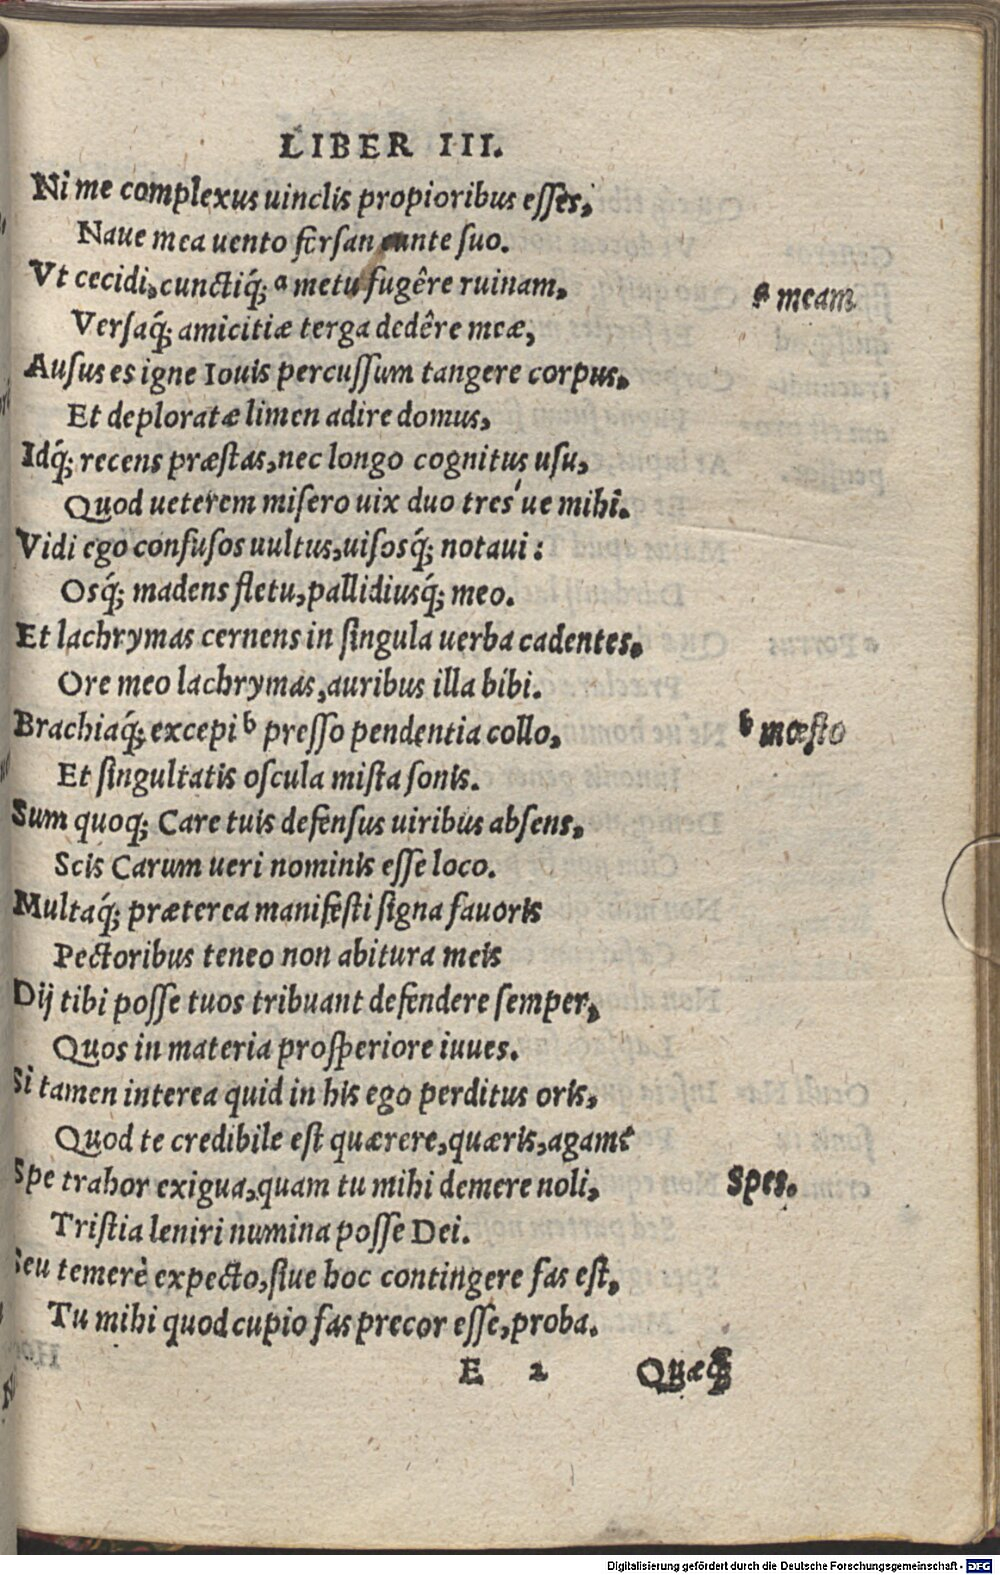 LIBER III.
Ni me complexus uinclis propioribus esses,
Naue mea uento forsan eunte suo.
Vt cecidi, cunctiq́; a metu fugêre ruinam,
a meam
Versaq́; amicitiæ terga dedêre meæ,
Ausus es igne Iouis percussum tangere corpus,
Et deploratæ limen adire domus,
Idq́; recens præstas, nec longo cognitus usu,
Quod ueterem misero uix duo tres'ue mihi.
Vidi ego confusos uultus, uisosq́; notaui:
Osq́; madens fletu, pallidiusq́; meo.
Et lachrymas cernens in singula uerba cadentes,
Ore meo lachrymas, auribus illa bibi.
Brachiaq́; excepi b presso pendentia collo,
b mœsto
Et singultatis oscula mista sonis.
Sum quoq; Care tuis defensus uiribus absens,
Scis Carum ueri nominis esse loco.
Multaq́; præterea manifesti signa fauoris
Pectoribus teneo non abitura meis
Dij tibi posse tuos tribuant defendere semper,
Quos in materia prosperiore iuues.
Si tamen interea quid in his ego perditus oris,
Quod te credibile est quærere, quæris, agam:
Spe trahor exigua, quam tu mihi demere noli,
Spes.
Tristia leniri numina posse Dei.
Seu temerè expecto, siue hoc contingere fas est,
Tu mihi quod cupio fas precor esse, proba.
E 2 Quæq́;
Digitalisierung gefördert durch die Deutsche Forschungsgemeinschaft - DFG